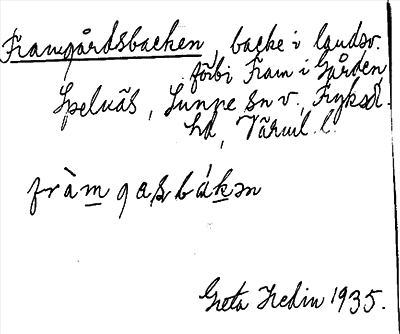 Framgårdsbacken, backe i landsv.
förbi Fram i Gården,
Spelnäs, Sunne sn v., Fryksd.
hd, Värml. l.
fràmgaṣbákən
Greta Hedin 1935.